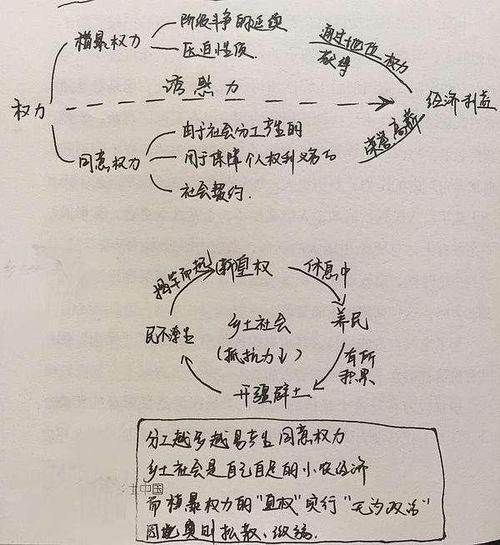 横暴权力
阶级斗争的延续
压迫性质.
通过地位权力
获得
诱惑力
权力
经济利益
荣誉,高薪
同意权力
由于社会分工产生的
用于保障个人权利义务的
社会契约.
揭竿而起
新皇权
休息中
养民
有所
积累
开疆辟土
民不聊生
乡土社会
(抵抗力↓)
分工越多越易产生同意权力
乡土社会是自己自足的小农经济
而横暴权力的"皇权"实行"无为政治"
因此奥则松散、微弱.
注中国